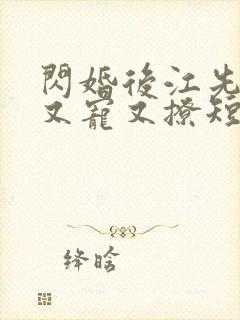 閃婚後江先
又寵又撩短
绛晗